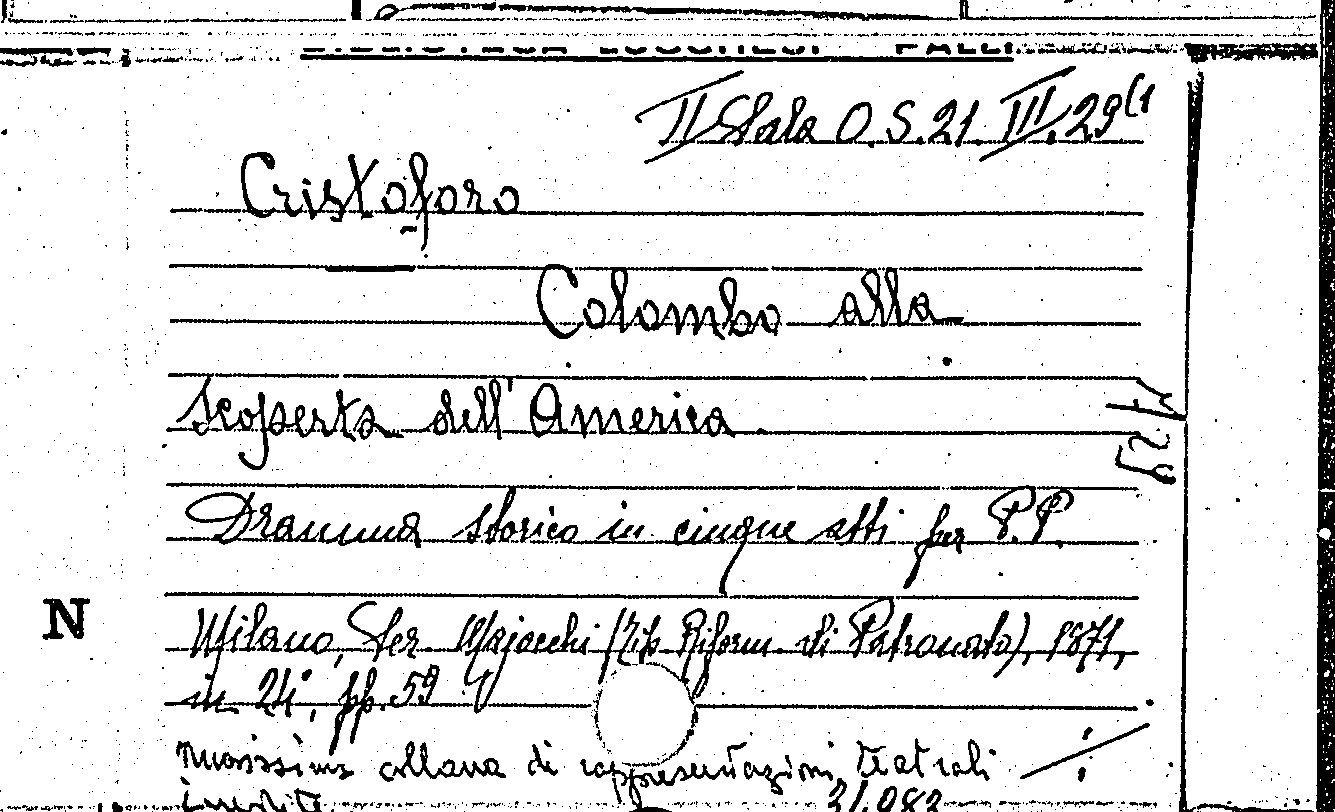 II Sala O.S.21. III.29(1
Cristoforo
Colombo alla
scoperta dell'America.
Dramma storico in cinque atti per P.P.
Milano, Ser. Majocchi (Tip. Riform. di Patronato), 1871,
in 24°, pp. 59
N
Nuovissima collana di rappresentazioni teatrali
inedite
31.983